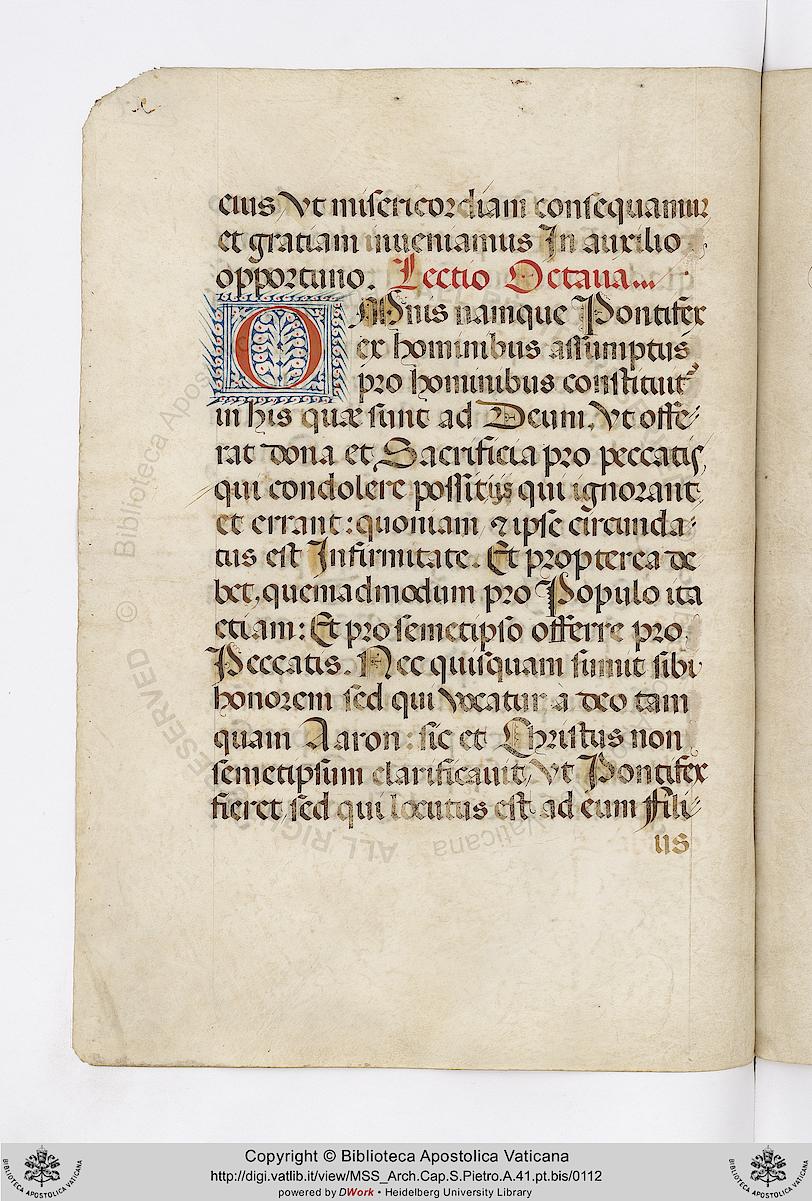 eius Vt misericordiam consequamur
et gratiam inueniamus In auxilio
opportuno. Lectio Octaua...
OMnis namque Pontifex
ex hominibus assumptus
pro hominibus constituit᷒
in his quæ sunt ad Deum, Vt offe⸗
rat dona et Sacrificia pro peccatis,
qui condolere possit ijs qui ignorant
et errant: quoniam & ipse circunda⸗
tus est Infirmitate. Et propterea de
bet, quemadmodum pro Populo ita
etiam: Et pro semetipso offerre pro
Peccatis. Nec quisquam sumit sibi
honorem sed qui Vocatur a deo tam
quam Aaron: sic et Christus non
semetipsum clarificauit, Vt Pontifex
fieret sed qui locutus est ad eum Fili⸗
us
© Biblioteca Apostolica Vaticana
ALL RIGHTS RESERVED
Copyright © Biblioteca Apostolica Vaticana
http://digi.vatlib.it/view/MSS_Arch.Cap.S.Pietro.A.41.pt.bis/0112
powered by DWork • Heidelberg University Library
BIBLIOTECA APOSTOLICA VATICANA
BIBLIOTECA APOSTOLICA VATICANA